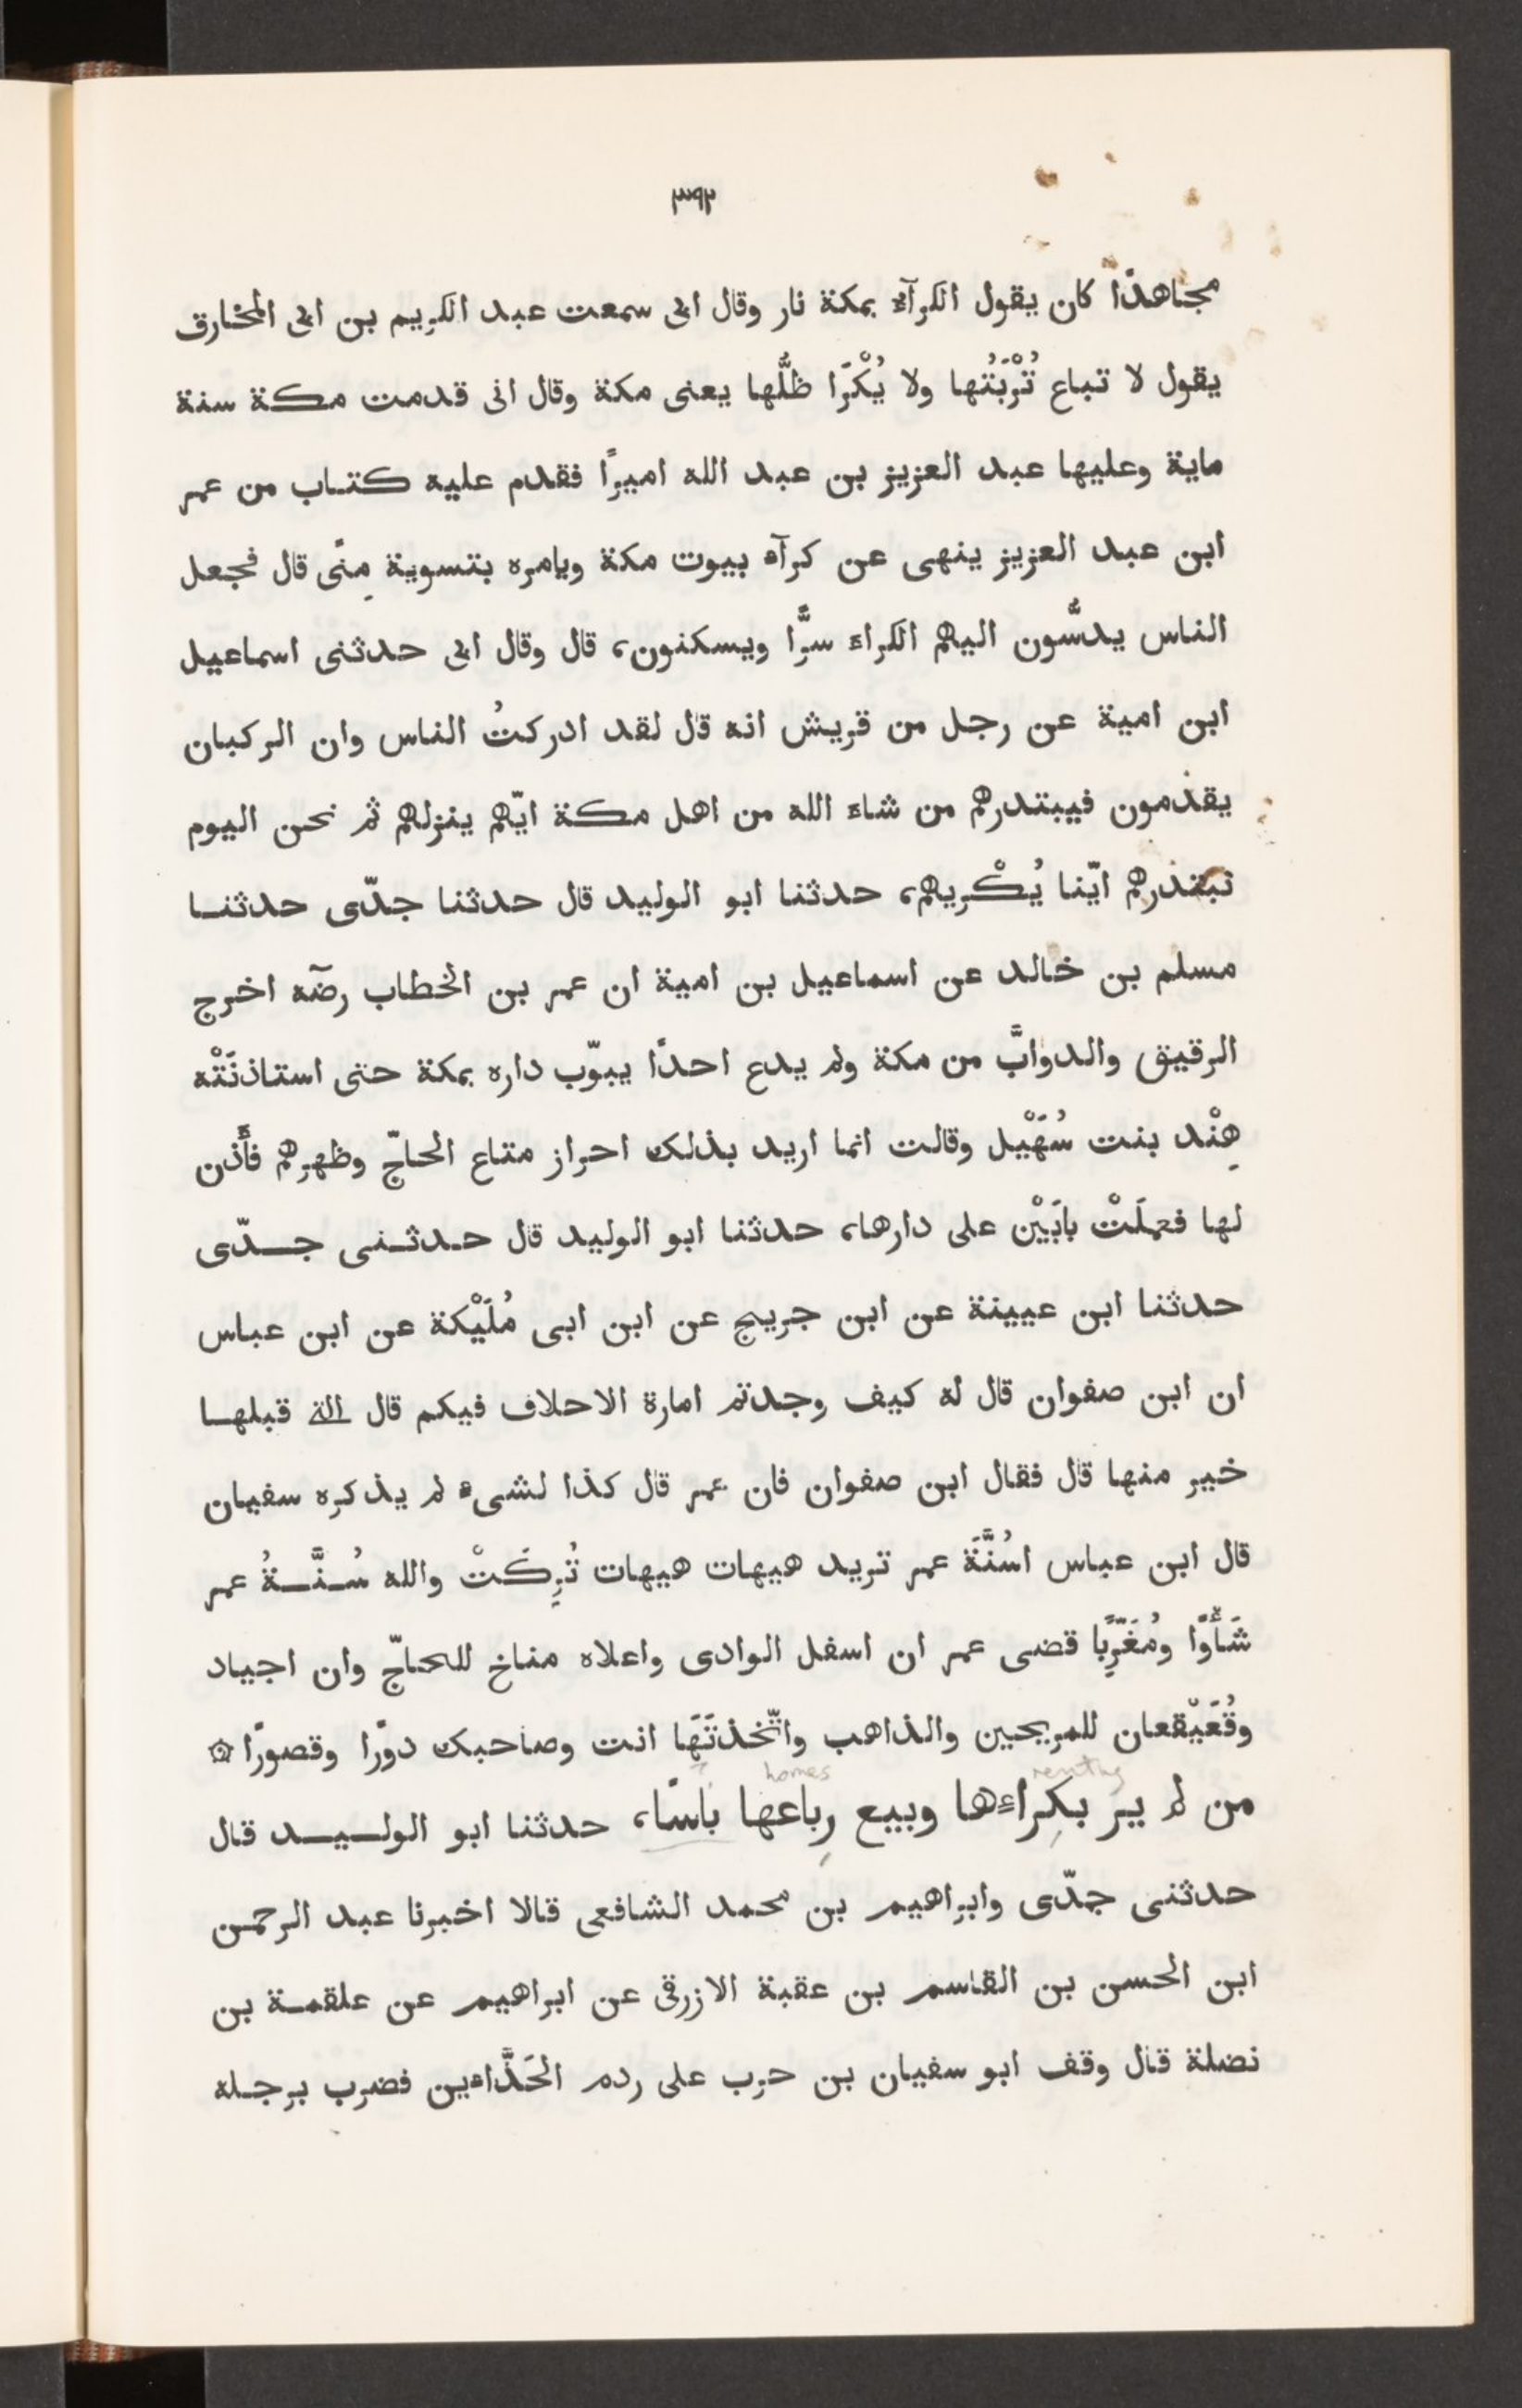 ٣٩٢
مجاهدًا كان يقول الكرآء بمكة نار وقال ابى سمعت عبد الكريم بن ابى المخارق
يقول لا تباع تُرْبَتُها ولا يُكْرَا ظلُّها يعنى مكة وقال انى قدمت مكة سنة
ماية وعليها عبد العزيز بن عبد الله اميرًا فقدم عليه كتاب من عمر
ابن عبد العزيز ينهى عن كرآء بيوت مكة ويامره بتسوية مِنًى قال فجعل
الناس يدسُّون اليهم الكراء سرًّا ويسكنون، قال وقال ابى حدثنى اسماعيل
ابن امية عن رجل من قريش انه قال لقد ادركتُ الناس وان الركبان
يقدمون فيبتدرهم من شاء الله من اهل مكة ايّهم ينزلهم ثم نحن اليوم
نبتدرهم ايّنا يُكْريهم، حدثنا ابو الوليد قال حدثنا جدّى حدثنا
مسلم بن خالد عن اسماعيل بن امية ان عمر بن الخطاب رضّه اخرج
الرقيق والدوابَّ من مكة ولم يدع احدًا يبوّب داره بمكة حتى استاذنَتْه
هِنْد بنت سُهَيْل وقالت انما اريد بذلك احراز متاع الحاجّ وظهرهم فأَذن
لها فعملَتْ بابَيْن على دارها، حدثنا ابو الوليد قال حدثنى جدّى
حدثنا ابن عيينة عن ابن جريج عن ابن ابى مُلَيْكة عن ابن عباس
ان ابن صفوان قال له كيف وجدتم امارة الاحلاف فيكم قال الة قبلها
خير منها قال فقال ابن صفوان فان عمر قال كذا لشىء لم يذكره سفيان
قال ابن عباس اسُنَّةَ عمر تريد هيهات هيهات تُرِكَتْ والله سُنَّةُ عمر
شَأْوًا ومُغَرِّبًا قضى عمر ان اسفل الوادى واعلاه مناخ للحاجّ وان اجياد
وقُعَيْقعان للمريحين والذاهب واتّخذتَها انت وصاحبك دورًا وقصورًا ۞
homes renting
من لم ير بكِراءها وبيع رِباعها باسًا، حدثنا ابو الوليد قال
حدثنى جدّى وابراهيم بن محمد الشافعى قالا اخبرنا عبد الرحمن
ابن الحسن بن القاسم بن عقبة الازرقى عن ابراهيم عن علقمة بن
نضلة قال وقف ابو سفيان بن حرب على ردم الحَذَّاءين فضرب برجله